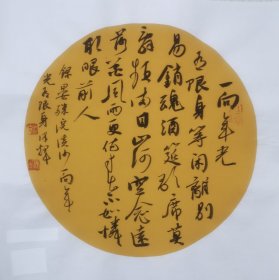 一向年光
有限身等闲離别
易銷魂酒筵歌席莫
辞頻满目山河空念遠
落花風雨更傷春不如憐
取眼前人
錄晏殊浣溪沙一向年
光有限身